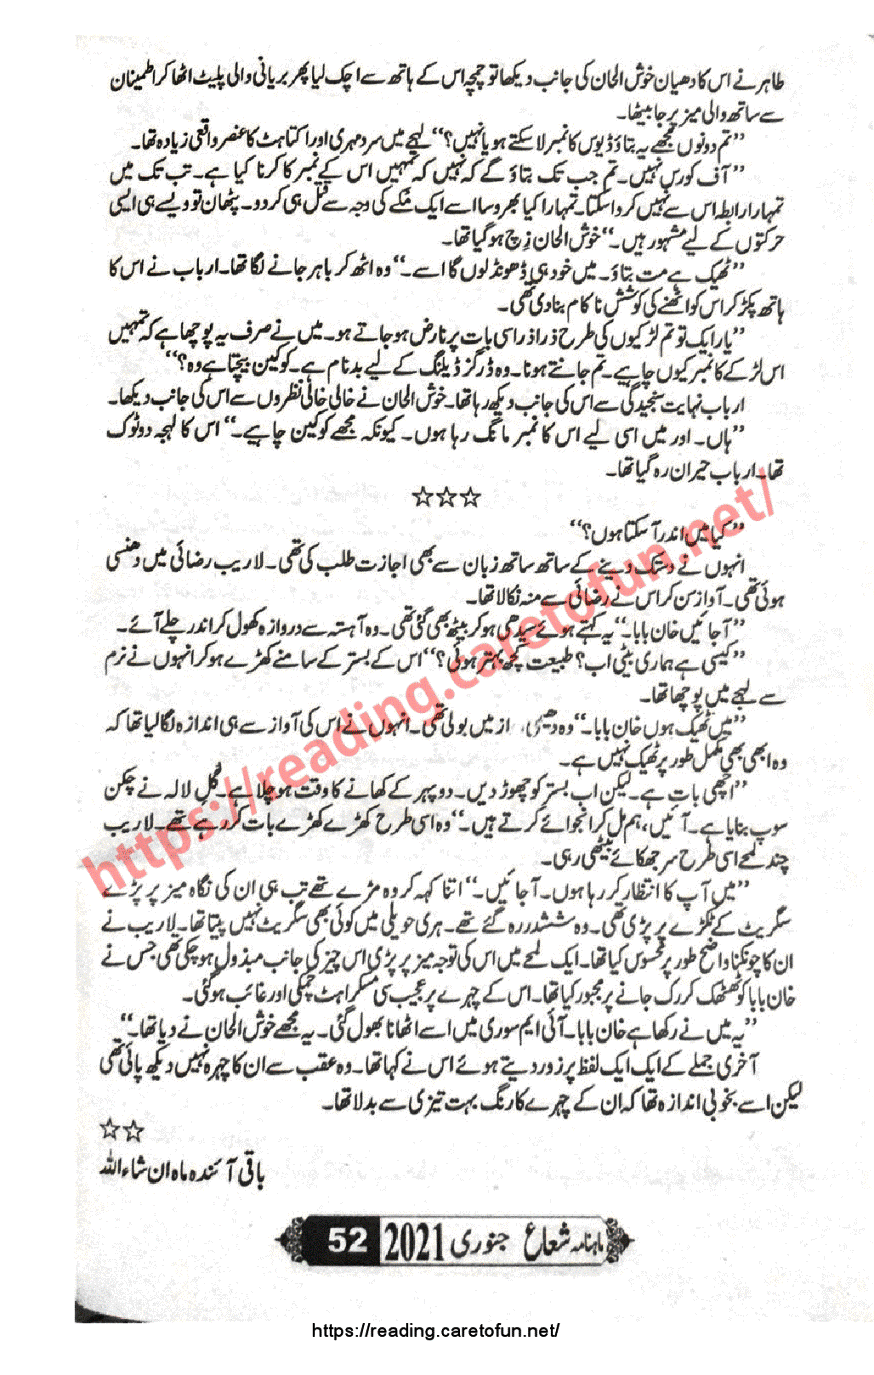 طاہر نے اس کا دھیان خوش الحان کی جانب دیکھا تو چمچہ اس کے ہاتھ سے اچک لیا پھر بریانی والی پلیٹ اٹھا کر اطمینان
سے ساتھ والی میز پر جا بیٹھا۔
”تم دونوں مجھے یہ بتاؤ ڈیوس کا نمبر لا سکتے ہو یا نہیں؟“ لہجے میں سرد مہری اور اکتاہٹ کا عنصر واقعی زیادہ تھا۔
”آف کورس نہیں۔ تم جب تک بتاؤ گے نہیں کہ تمہیں اس کے نمبر کا کرنا کیا ہے۔ تب تک میں
تمہارا رابطہ اس سے نہیں کروا سکتا۔ تمہارا کیا بھروسا اسے ایک مکے کی وجہ سے قتل ہی کر دو۔ پٹھان تو ویسے ہی ایسی
حرکتوں کے لیے مشہور ہیں۔“ خوش الحان زچ ہو گیا تھا۔
”ٹھیک ہے مت بتاؤ۔ میں خود ہی ڈھونڈ لوں گا اسے۔“ وہ اٹھ کر باہر جانے لگا تھا۔ ارباب نے اس کا
ہاتھ پکڑ کر اس کو اٹھنے کی کوشش ناکام بنا دی تھی۔
”یار ایک تو تم لڑکیوں کی طرح ذرا ذرا سی بات پر نارض ہو جاتے ہو۔ میں نے صرف یہ پوچھا ہے کہ تمہیں
اس لڑکے کا نمبر کیوں چاہیے۔ تم جانتے ہو نا۔ وہ ڈرگز ڈیلنگ کے لیے بدنام ہے۔ کوکین بیچتا ہے وہ؟“
ارباب نہایت سنجیدگی سے اس کی جانب دیکھ رہا تھا۔ خوش الحان نے خالی خالی نظروں سے اس کی جانب دیکھا۔
”ہاں۔ اور میں اسی لیے اس کا نمبر مانگ رہا ہوں۔ کیونکہ مجھے کوکین چاہیے۔“ اس کا لہجہ دو ٹوک
تھا۔ ارباب حیران رہ گیا تھا۔
☆☆☆
”کیا میں اندر آ سکتا ہوں؟“
انہوں نے دستک دینے کے ساتھ ساتھ زبان سے بھی اجازت طلب کی تھی۔ لاریب رضائی میں دھنسی
ہوئی تھی۔ آواز سن کر اس نے رضائی سے منہ نکالا تھا۔
”آ جائیں خان بابا۔“ یہ کہتے ہوئے سیدھی ہو کر بیٹھ بھی گئی تھی۔ وہ آہستہ سے دروازہ کھول کر اندر چلے آئے۔
”کیسی ہے ہماری بیٹی اب؟ طبیعت کچھ بہتر ہوئی؟“ اس کے بستر کے سامنے کھڑے ہو کر انہوں نے نرم
سے لہجے میں پوچھا تھا۔
”میں ٹھیک ہوں خان بابا۔“ وہ دھیمی از میں بولی تھی۔ انہوں نے اس کی آواز سے ہی اندازہ لگا لیا تھا کہ
وہ ابھی بھی مکمل طور پر ٹھیک نہیں ہے۔
”اچھی بات ہے۔ لیکن اب بستر کو چھوڑ دیں۔ دوپہر کے کھانے کا وقت ہو چلا ہے۔ گل لالہ نے چکن
سوپ بنایا ہے۔ آئیں، ہم مل کر انجوائے کرتے ہیں۔“ وہ اسی طرح کھڑے کھڑے بات کر رہے تھے۔ لاریب
چند لمحے اسی طرح سر جھکائے بیٹھی رہی۔
”میں آپ کا انتظار کر رہا ہوں۔ آ جائیں۔“ اتنا کہہ کر وہ مڑے تھے تب ہی ان کی نگاہ میز پر پڑے
سگریٹ کے ٹکڑے پر پڑی تھی۔ وہ ششدر رہ گئے تھے۔ ہری حویلی میں کوئی بھی سگریٹ نہیں پیتا تھا۔ لاریب نے
ان کا چونکنا واضح طور پر محسوس کیا تھا۔ ایک لمحے میں اس کی توجہ میز پر پڑی اس چیز کی جانب مبذول ہو چکی تھی جس نے
خان بابا کو ٹھٹھک کر رک جانے پر مجبور کیا تھا۔ اس کے چہرے پر عجیب سی مسکراہٹ چمکی اور غائب ہو گئی۔
”یہ میں نے رکھا ہے خان بابا۔ آئی ایم سوری میں اسے اٹھانا بھول گئی۔ یہ مجھے خوش الحان نے دیا تھا۔“
آخری جملے کے ایک ایک لفظ پر زور دیتے ہوئے اس نے کہا تھا۔ وہ عقب سے ان کا چہرہ نہیں دیکھ پائی تھی
لیکن اسے بخوبی اندازہ تھا کہ ان کے چہرے کا رنگ بہت تیزی سے بدلا تھا۔
☆☆
باقی آئندہ ماہ ان شاءاللہ
ماہنامہ شعاع جنوری 2021 52
https://reading.caretofun.net/
https://reading.caretofun.net/